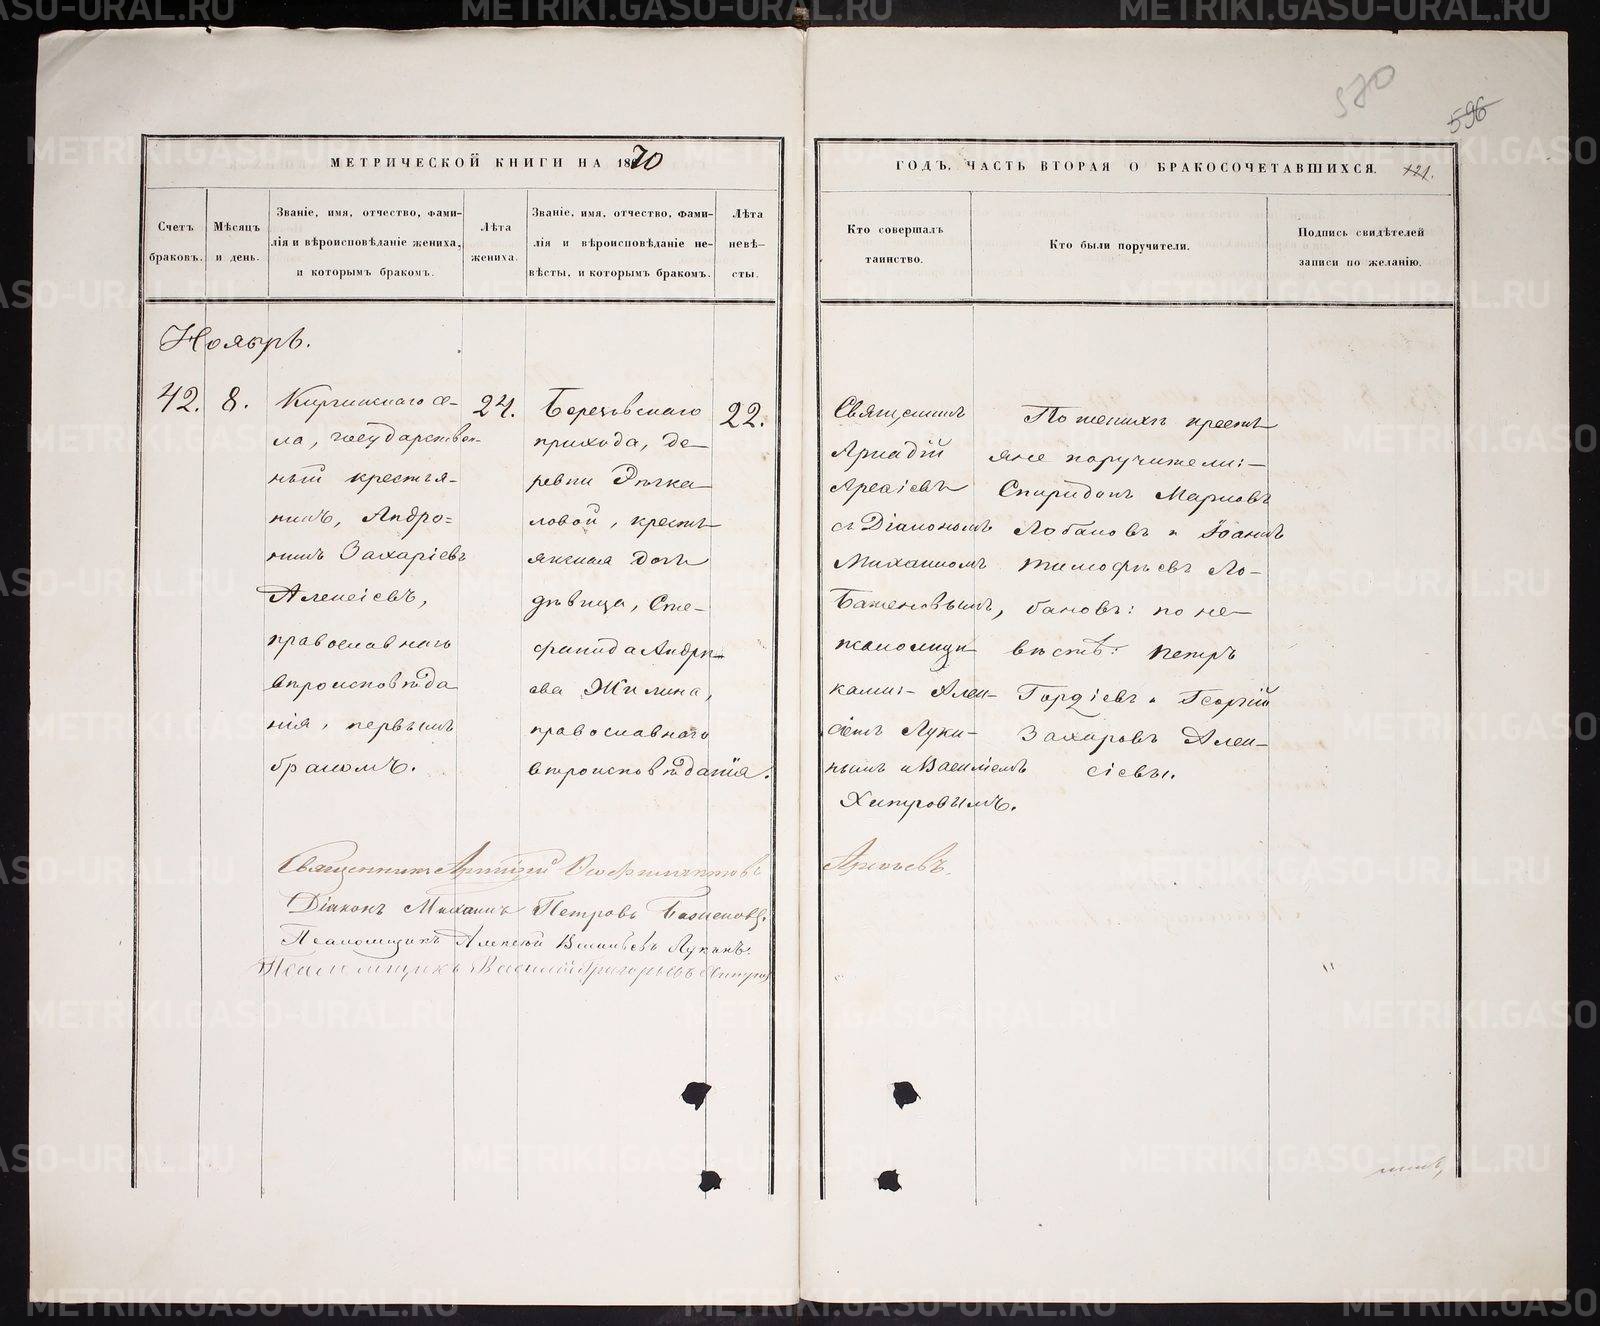 570
596
МЕТРИЧЕСКОЙ КНИГИ НА 1870
ГОДЪ, ЧАСТЬ ВТОРАЯ О БРАКОСОЧЕТАВШИХСЯ.
121.
Счетъ браковъ.
Мѣсяцъ и день.
Званіе, имя, отчество, фами-
лія и вѣроисповѣданіе жениха,
и которымъ бракомъ.
Лѣта жениха.
Званіе, имя, отчество, фами-
лія и вѣроисповѣданіе не-
вѣсты, и которымъ бракомъ.
Лѣта
невѣ-
сты.
Кто совершалъ
таинство.
Кто были поручители.
Подпись свидѣтелей
записи по желанію.
Ноябрь.
42.
8.
Киргинскаго се-
ла, государствен-
ный крестья-
нинъ, Андро-
никъ Захаріевъ
Алексіевъ,
православнаго
вѣроисповѣда
нія, первымъ
бракомъ.
24.
Березовскаго
прихода, де-
ревни
ловой, кресть
янская дочь
дѣвица, Сте-
фанида Андре-
ева Жилина,
православнаго
вѣроисповѣданія.
22.
Священникъ
Аркадій
Арсаіевъ
съ Діакономъ
Михаиломъ
Баженовымъ,
псаломщи
ками:- Алек-
сѣемъ Луки-
нымъ и Василіемъ
Хитровымъ.
По женихѣ кресть
яне поручители:-
Спиридонъ Марковъ
Лобановъ и Іоаннъ
Тимофѣевъ Ло-
бановъ: по не-
вѣстѣ: Петръ
Гордіевъ и Георгій
Захаровъ Алек-
сіевы.
Священникъ Аркадій
Діаконъ Михаилъ Петровъ Баженовъ.
Псаломщикъ Алексѣй Лукинъ.
Псаломщикъ Василій Григорьевъ Хитровъ
METRIKI.GASO-URAL.RU